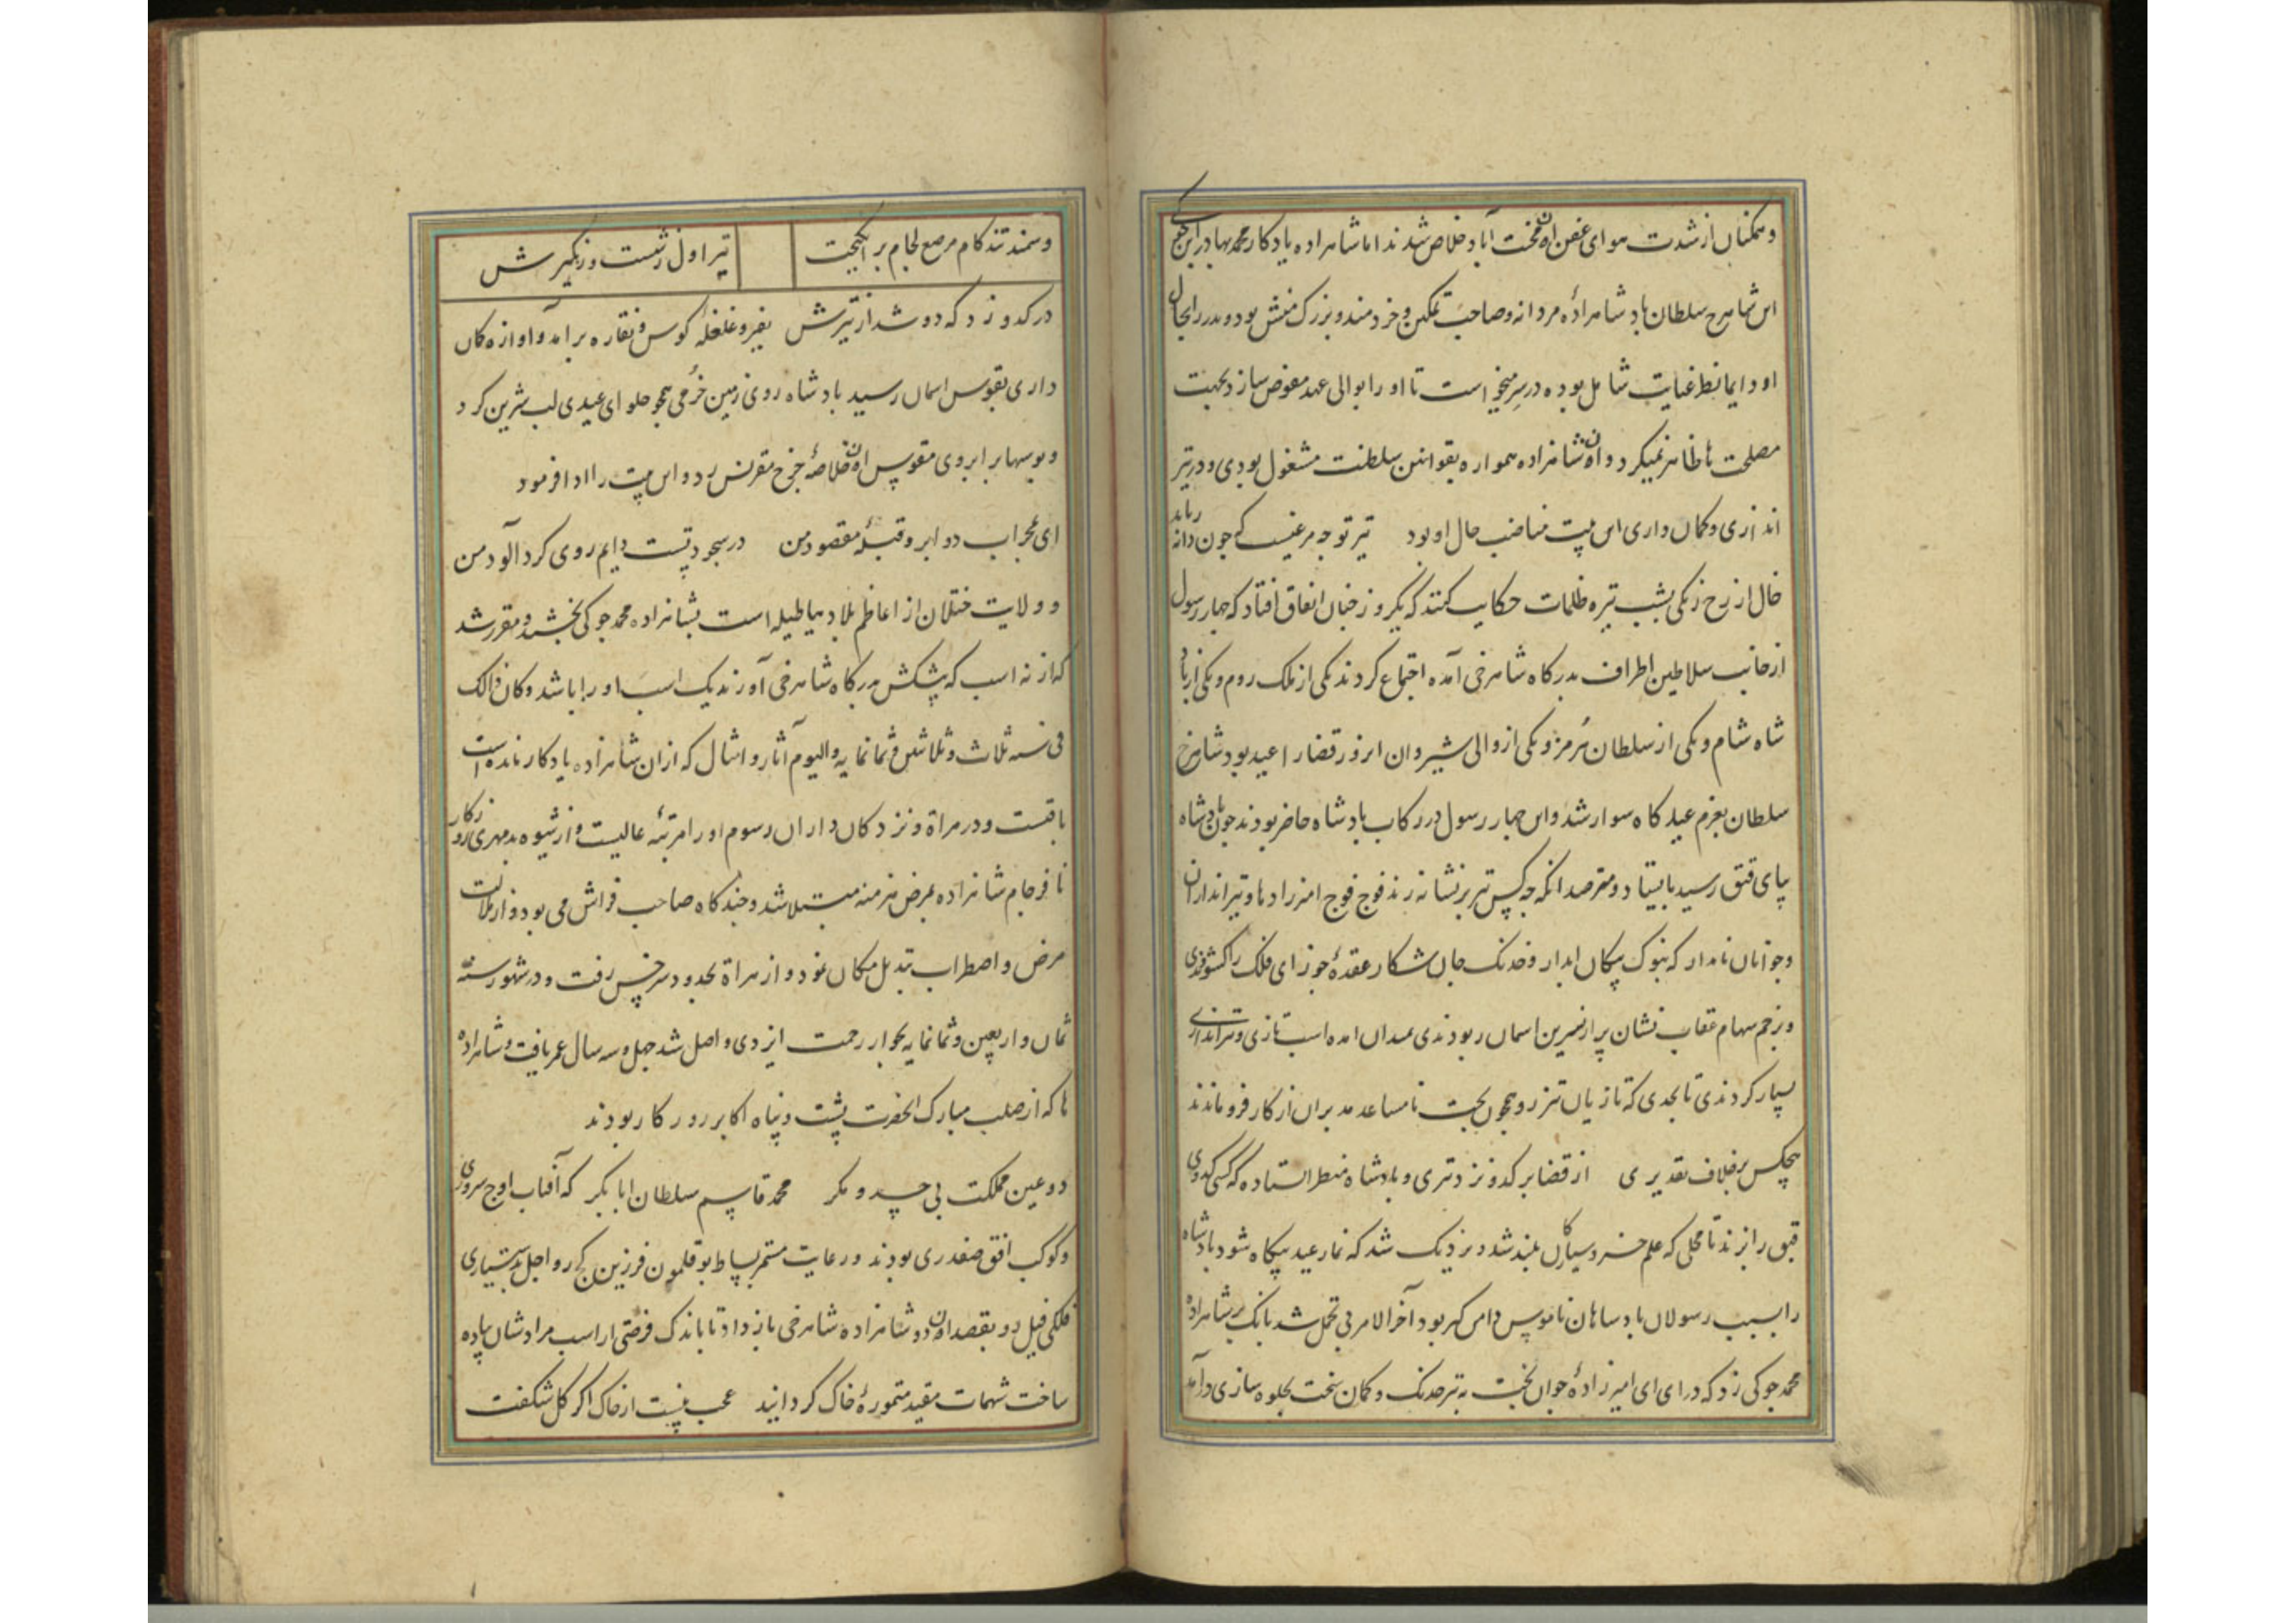 و همکنان از شدت هوای عفن ان محنت آباد خلاص شدند اما شاهزاده یادکار محمد بهادر ابن جوکی
ابن شاهرخ سلطان پادشاهزادهٔ مردانه و صاحب تمکین و خردمند و بزرک منش بود و پدر را بحال
او دایما نظر عنایت شامل بوده در سر میخواست تا او را بوالی عهد مفوض سازد بجهت
مصلحت ها ظاهر نمیکرد و ان شاهزاده همواره بقوانین سلطنت مشغول بودی و در تیر
اندازی و کمان داری این بیت مناصب حال او بود تیر تو جه مرغیست که چون دانه رباید
خال از رخ زنکی بشب تیره ظلمات حکایت کنند که یکروز چنان اتفاق افتاد که چهار رسول
از جانب سلاطین اطراف بدرکاه شاهرخی آمده اجتماع کردند یکی از ملک روم و یکی از باد
شاه شام و یکی از سلطان هُرمز و یکی از والی شیروان ان روز قضا را عید بود شاهرخ
سلطان بعزم عیدکاه سوار شد و این چهار رسول در رکاب پادشاه حاضر بودند چون پادشاه
بپای قبق رسید بایستاد و مترصد انکه چه کس تیر بر نشانه زند فوج فوج امیرزادها و تیراندازان
و جوانان نامدار که بنوک پیکان ابدار و خدنک جان شکار عقدهٔ جوزای فلک را کشودندی
و بزخم سهام عقاب نشان پر از نسرین اسمان ربودندی بمیدان امده اسب تازی و تیر اندازی
بسیار کردندی تا بحدی که تازیان تیز رو همچون بخت نامساعد مدبران از کار فرو ماندند
هیچکس بر خلاف تقدیری از قضا بر کدو نزد تیری و پادشاه منتظر استاده که کسی کدوی
قبق را بزند تا محلی که علم خسرو سیارکان بلند شد و نزدیک شد که نماز عید بیکاه شود پادشاه
را بسبب رسولان پادساهان ناموس دامن کیر بود آخر الامر بی تحمل شد بانک بر شاهزاده
محمد جوکی زد که درای ای امیرزادهٔ جوان بخت به تیر خدنک و کمان سخت بجلوه سازی درآمد
و سمند تند کام مرصع لجام بر انکیخت تیر اول ز شست و زهکیرش
در کدو زد که دو شد از تیرش نفیر و غلغلهٔ کوس و نقاره برامد و اوازه کمان
داری بقوس اسمان رسید پادشاه روی زمین خرمی همچو حلوای عیدی لب شیرین کرد
و بوسها بر ابروی مقوس ان خلاصهٔ چرخ مقرنس زد و این بیت را ادا فرمود
ای محراب دو ابرو قبلهٔ مقصود من در سجودتست دایم روی کرد آلود من
و ولایت ختلان از اعاظم بلاد هیاطیله است بشاهزاده محمد جوکی بخشید و مقرر شد
که از نه اسب که پیشکش بدرکاه شاهرخی آورند یک اسب او را باشد و کان ذالک
فی سنه ثلاث و ثلاثین و ثمانمایه و الیوم آثار و امثال که از ان شاهزاده یادکار مانده است
باقیست و در هراة و نزد کمان داران رسوم او را مرتبهٔ عالیست و از شیوه بدمهری روزکار
نافرجام شاهزاده بمرض مزمنه مبتلا شد و چندکاه صاحب فراش می بود و از ملالت
مرض و اضطراب تبدیل مکان نمود و از هراة بحدود سرخس رفت و در شهور سنه
ثمان و اربعین و ثمانمایه بجوار رحمت ایزدی واصل شد چهل و سه سال عمر یافت و شاهزاده
ها که از صلب مبارک انحضرت پشت و پناه اکابر روزکار بودند
دو عین مملکت بی حسد و مکر محمد قاسم سلطان ابابکر که آفتاب اوج سروری
و کوکب افق صفدری بودند و رعایت مستمر بساط بوقلمون فرزین کج رو اجل بدستیاری
فلکی فیل دو بقصد ان دو شاهزاده شاهرخی بازداد تا باندک فرصتی از اسب مرادشان پیاده
ساخت شهمات مقید متمورهٔ خاک کردانید عجب نیست از خاک اکر کل شکفت